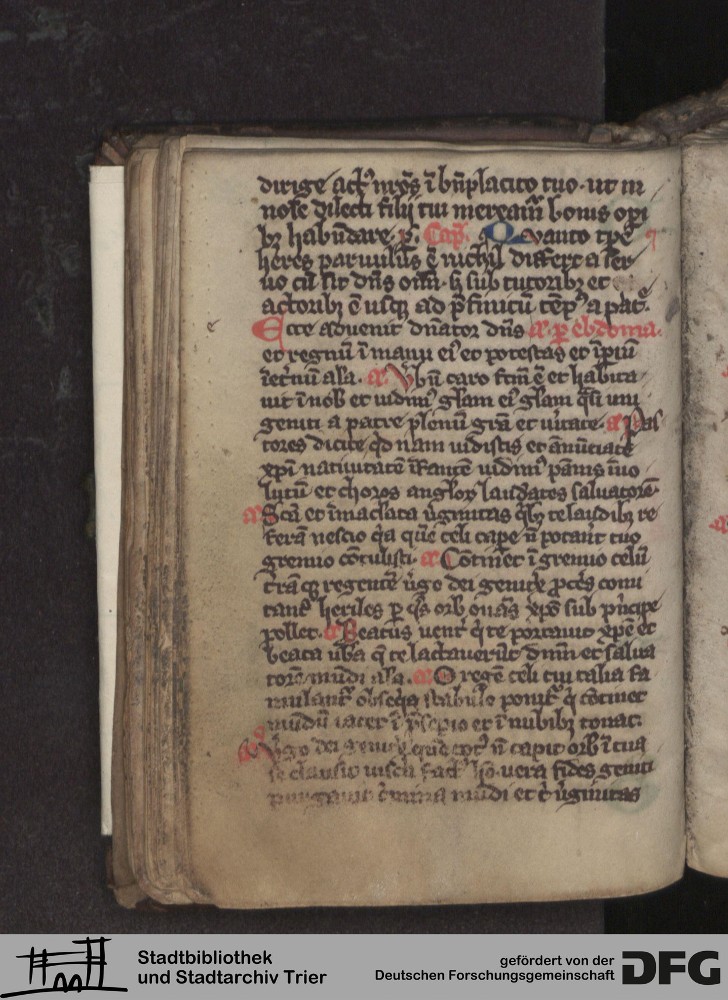 dirige actꝰ nr̄os ī bn̄placito tuo · ut in
noīe dilecti filij tui mereamur bonis opi
bꝫ habūdare p. Cap̄. Quanto tp̄e
heres paruulus ē nichil differt a ser
uo cū sit dn̄s oīm · sꝫ sub tutoribꝫ et
actoribꝫ ē usqꝫ ad p̄finitū tēpꝰ a pat̄e.
Ecce aduenit dn̄ator dn̄s a. p ebdoma.
et regnū ī manu eiꝰ et potestas et īpiū
a. Vbū caro fcm̄ ē et habita
uit ī nob et uidimꝰ gl̄am eiꝰ gl̄am qͣsi uni
geniti a patre plenū grā et uitate. a Pas
tores dicite qd nam uidistis et ānūciate
xp̄i natiuitatē īfantē uidimꝰ pānis īuo
lutū et choros angl̄oꝝ laudātes saluatorē.
a Scā et īmaclata ūginitas qͥbꝫ te laudibꝫ re
ferā nescio qͥa quē celi cape n̄ potant tuo
gremio cōtulisti. a Cōtinet ī gremio celū
trāqꝫ regentē ūgo dei genitx̄ pc̄es comi
tantꝰ heriles p qͦs orb ouās xp̄o sub pͥncipe
pollet. a Beatus uentꝰ qͥ te portauit xp̄e et
beata uba q̄ te lactauerūt dn̄m et salua
torē mūdi all̄a. a O regē celi cui talia fa
mulantꝰ obseqͥa stabulo ponitꝰ qͥ cōtinet
mūdū iacet ī p̄sepio et ī nubibꝫ tonat.
Virgo dei genitx̄ quē totꝰ n̄ capit orb ī tua
se clausit uiscā factꝰ hō · uera fides geniti
purgauit cͥmina mūdi et tͥ ūginitas
Stadtbibliothek
und Stadtarchiv Trier
gefördert von der
Deutschen Forschungsgemeinschaft
DFG